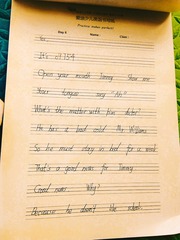 Practice makes perfect
Day 4 Name: Class:
It's at 154
Open your mouth Jimmy Show me
Your tongue say "Ah"
What's the matter with him doctor
He has a bad cold Mr Williams
So he must stay in bed for a week
That's a good news for Jimmy
Good news Why?
Because he doesn't like school